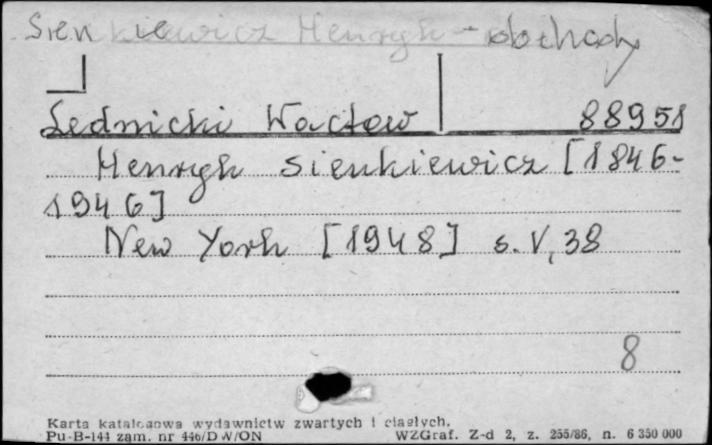 Sienkiewicz Henryk - obchody
Lednicki Wacław 88951
Henryk Sienkiewicz [1846-
1946]
New York [1948] s. V, 38
8
Karta katalogowa wydawnictw zwartych i ciągłych.
Pu-B-144 zam. nr 446/DW/ON WZGraf. Z-d 2, z. 255/86, n. 6 350 000